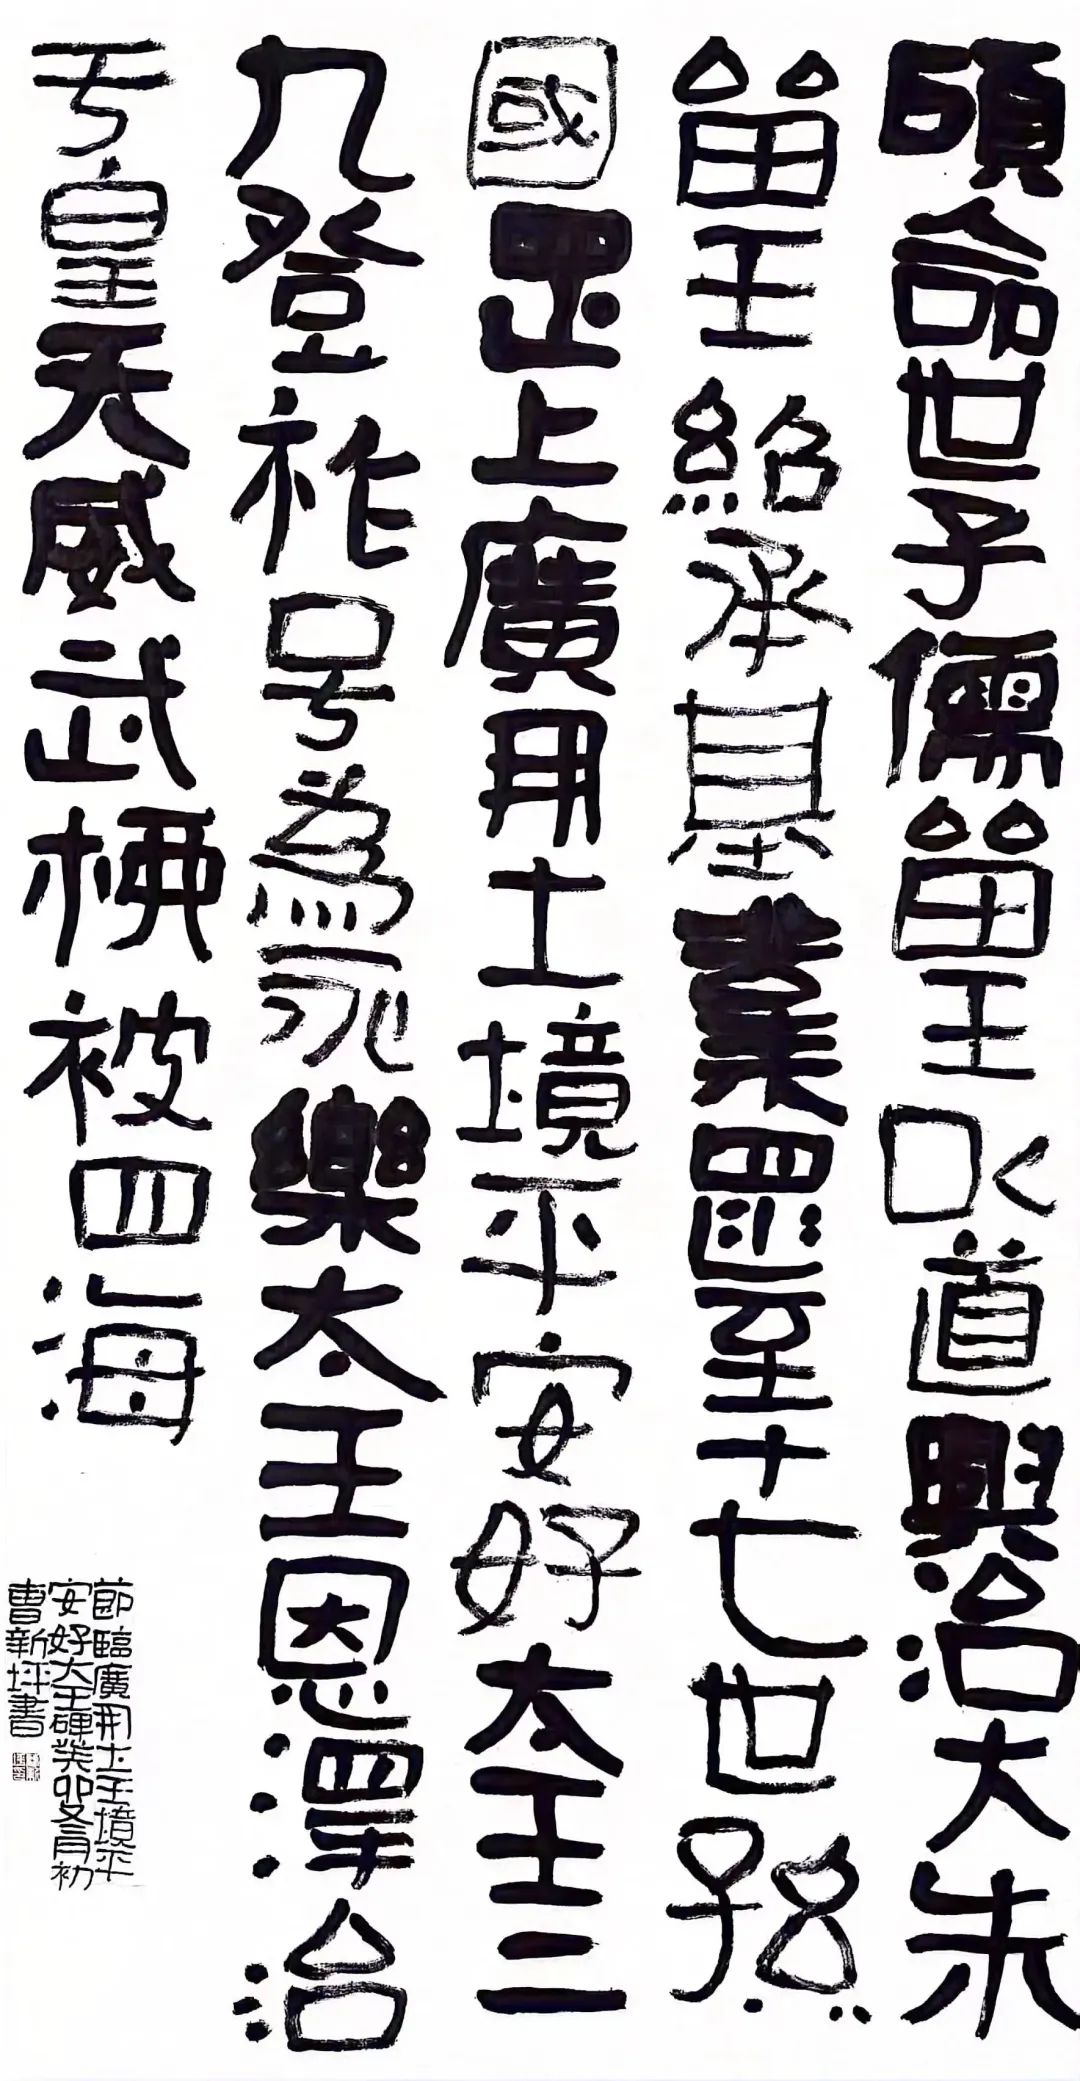 顧命世子儒留王以道興治大朱
留王紹承基業遝至十七世孫
國罡上廣開土境平安好太王二
九登祚号為永樂太王恩澤洽
于皇天威武桭被四海
節臨廣開土王境平
安好大王碑癸卯冬月初
曹新坪書